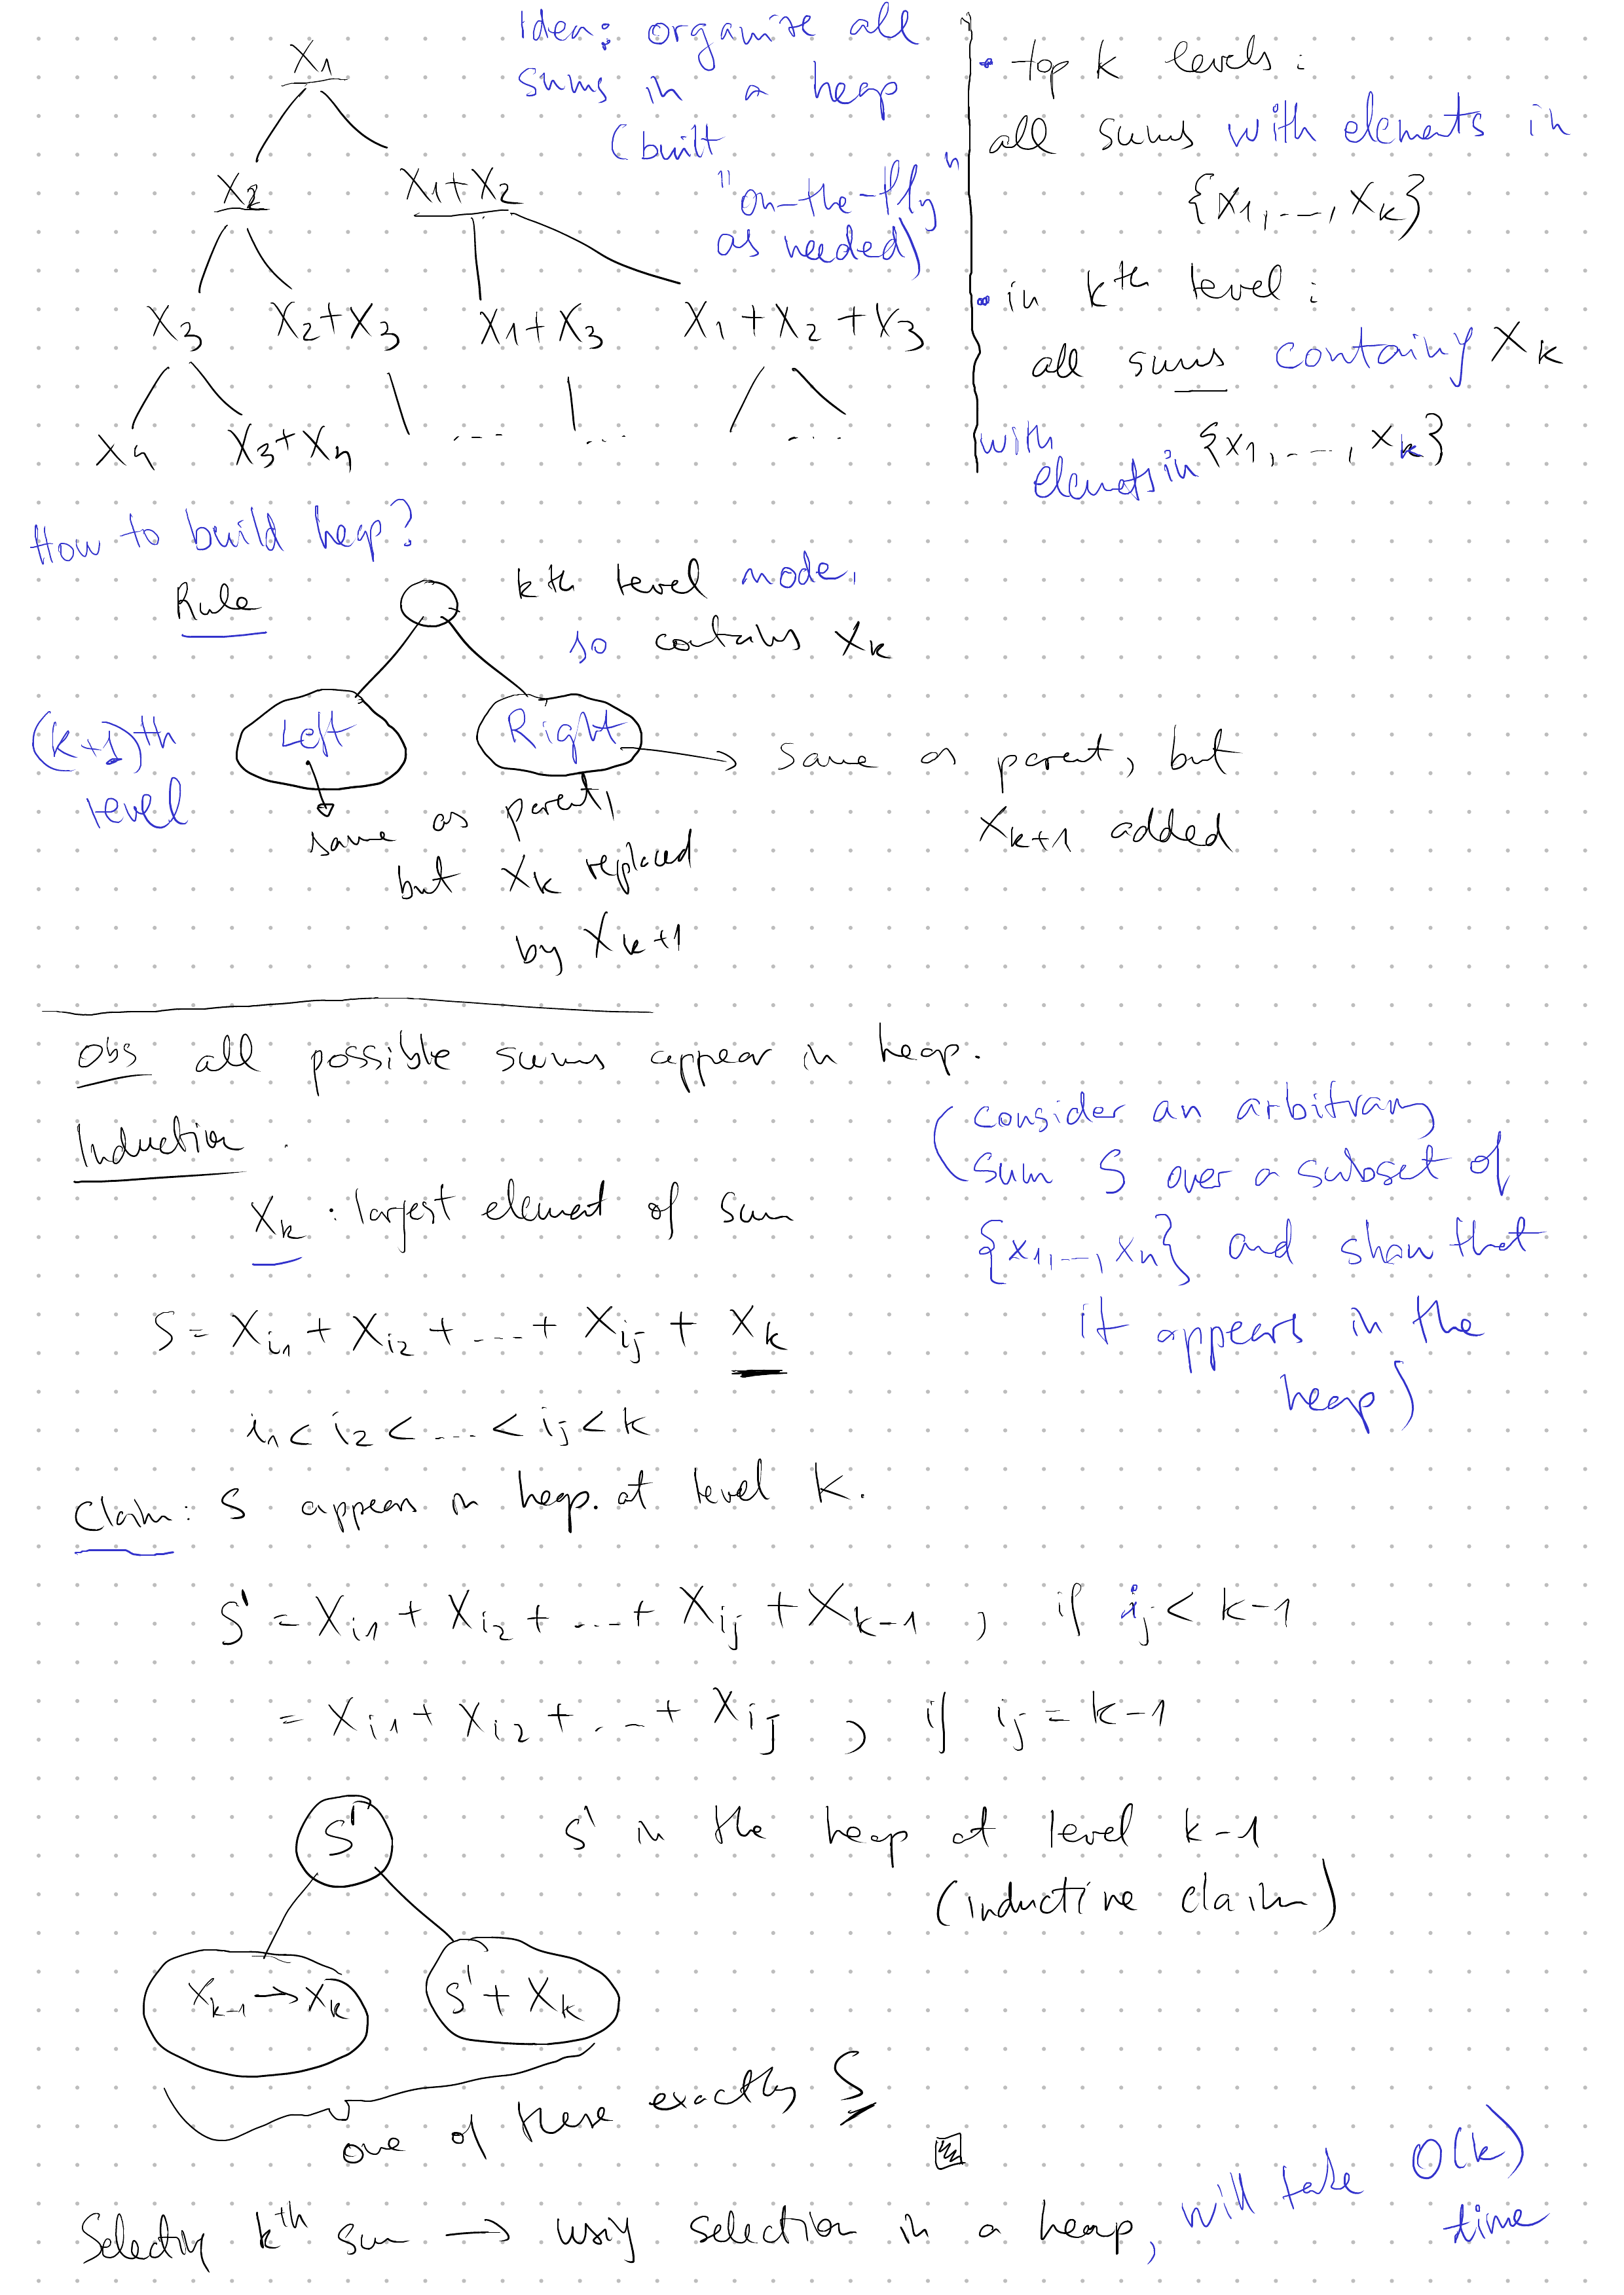 Idea: organize all
sums in a heap
(built
"on-the-fly"
as needed)
X1
X2 X1+X2
X3 X2+X3 X1+X3 X1+X2+X3
X4 X3+X4 .... ... ...
• top k levels:
all sums with elements in
{X1,..., Xk}
• in kth level:
all sums containg Xk
with
elements in {X1,...., Xk}
How to build heap?
Rule
kth level node,
so contains Xk
(k+1)th
level
Left
Right
→ same as parent, but
Xk+1 added
same as parent,
but Xk replaced
by Xk+1
Obs all possible sums appear in heap.
Induction
(consider an arbitrary
sum S over a subset of
{X1,..,Xn} and show that
it appears in the
heap)
Xk : largest element of sum
S = Xi1 + Xi2 + ....+ Xij + Xk
i1 < i2 < .... < ij < k
Claim: S appears in heap. at level k.
S' = Xi1 + Xi2 + ....+ Xij + Xk-1 , if ij < k-1
= Xi1 + Xi2 + ...+ Xij , if ij = k-1
S'
S' in the heap at level k-1
(inductive claim)
Xk-1 → Xk
S' + Xk
one of these exactly S
Selectig kth sum → usig selection in a heap, will take O(k)
time